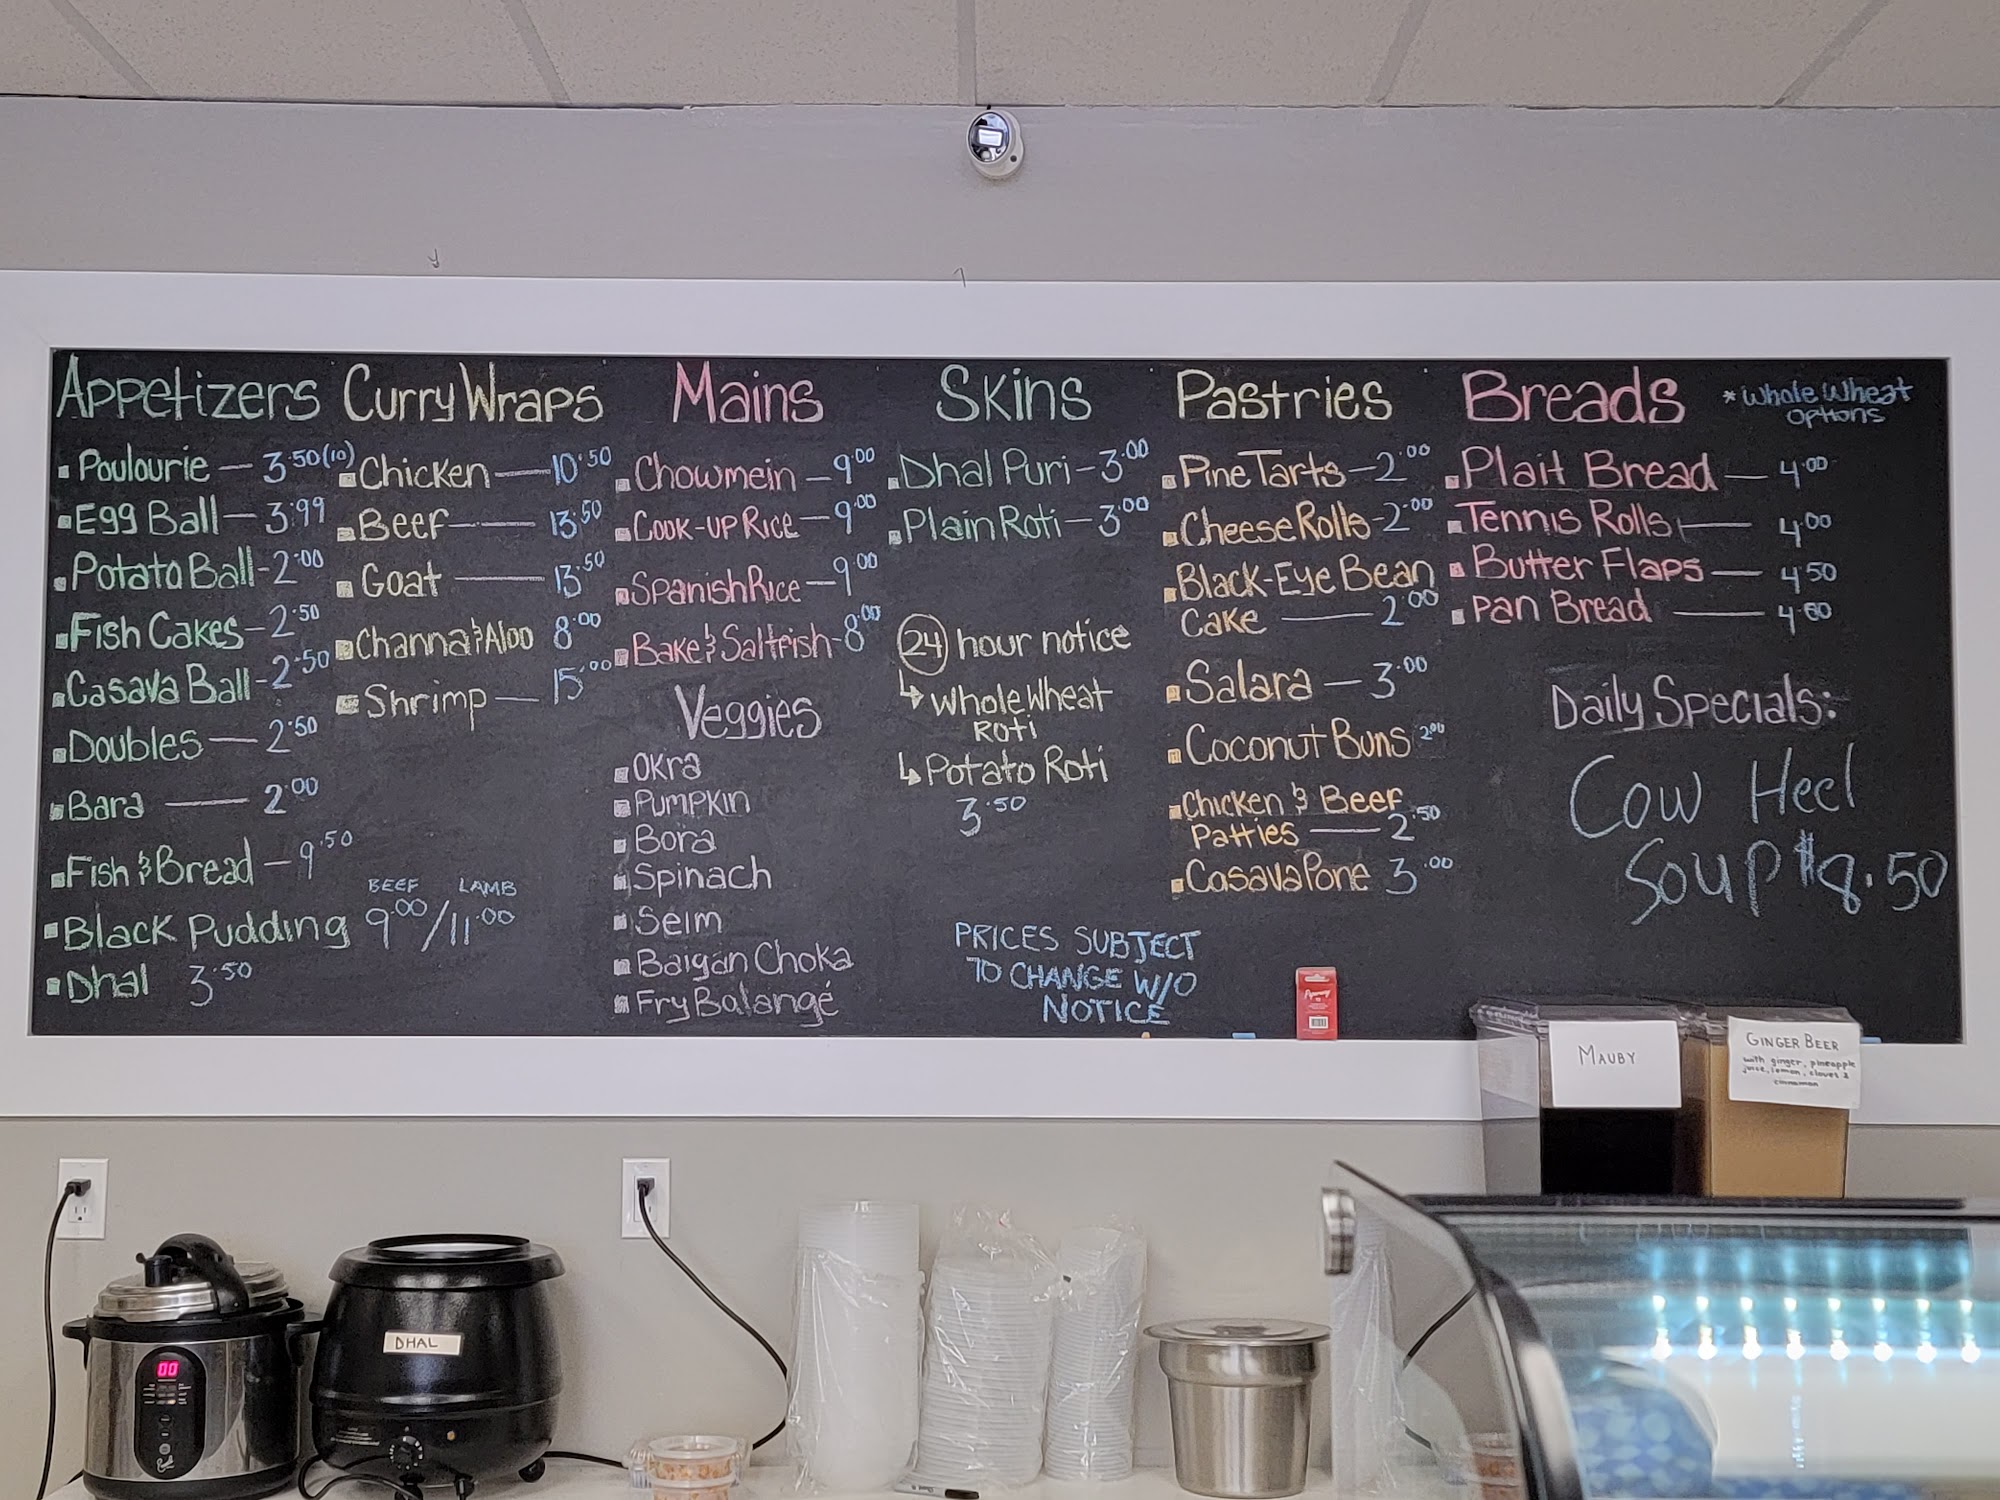 Appetizers
Poulourie — 3.50 (10)
Egg Ball — 3.99
Potato Ball - 2.00
Fish Cakes - 2.50
Casava Ball - 2.50
Doubles — 2.50
Bara — 2.00
Fish & Bread — 9.50
BEEF LAMB
Black Pudding 9.00/11.00
Dhal 3.50
Curry Wraps
Chicken — 10.50
Beef — 13.50
Goat — 13.50
Channa & Aloo 8.00
Shrimp — 15.00
Mains
Chowmein — 9.00
Cook-up Rice — 9.00
Spanish Rice — 9.00
Bake & Saltfish - 8.00
Veggies
Okra
Pumpkin
Bora
Spinach
Seim
Baigan Choka
Fry Balangé
Skins
Dhal Puri - 3.00
Plain Roti - 3.00
24 hour notice
↳ Whole Wheat
Roti
↳ Potato Roti
3.50
PRICES SUBJECT
TO CHANGE W/O
NOTICE
Pastries
Pine Tarts — 2.00
Cheese Rolls - 2.00
Black-Eye Bean
Cake — 2.00
Salara — 3.00
Coconut Buns 2.00
Chicken & Beef
Patties — 2.50
Casava Pone 3.00
Breads
*Whole Wheat
Options
Plait Bread — 4.00
Tennis Rolls — 4.00
Butter Flaps — 4.50
Pan Bread — 4.00
Daily Specials:
Cow Heel
Soup $8.50
MAUBY
GINGER BEER
with ginger, pineapple
juice, lemon, cloves &
cinnamon
DHAL
00